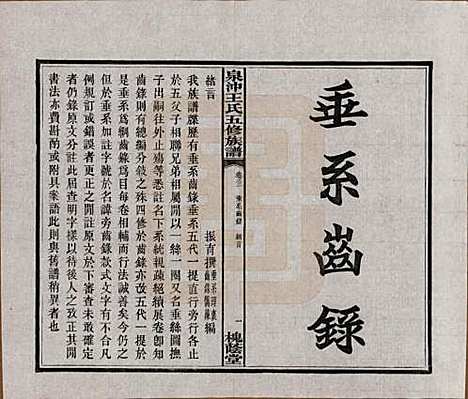 垂系齒錄
泉沖王氏五修族譜
卷三 垂系齒錄 緒言
一 槐蔭堂
緒言
振育撰
我族譜牒歷有垂系齒錄垂系五代一提直行旁行各止
於五父子相聯兄弟相屬間以一絲一圈又名垂絲圖撫
子出嗣往外止殤等悉註名下系統親疏絕續展卷卽知
齒錄則有總編分編之殊四修於齒錄亦改五代一提於
是垂系爲綱齒錄爲目每卷相輔而行法誠善也今仍之
於垂系加註老諱旁齒錄款式文字前後亦有不合凡
例規訂或錯誤者更正之間註原文於下審查未敢確定
者仍錄原文惟此屆查明字樣或以待後人考之致正其間
書法亦費斟酌或附具案語此則與舊譜稍異者也